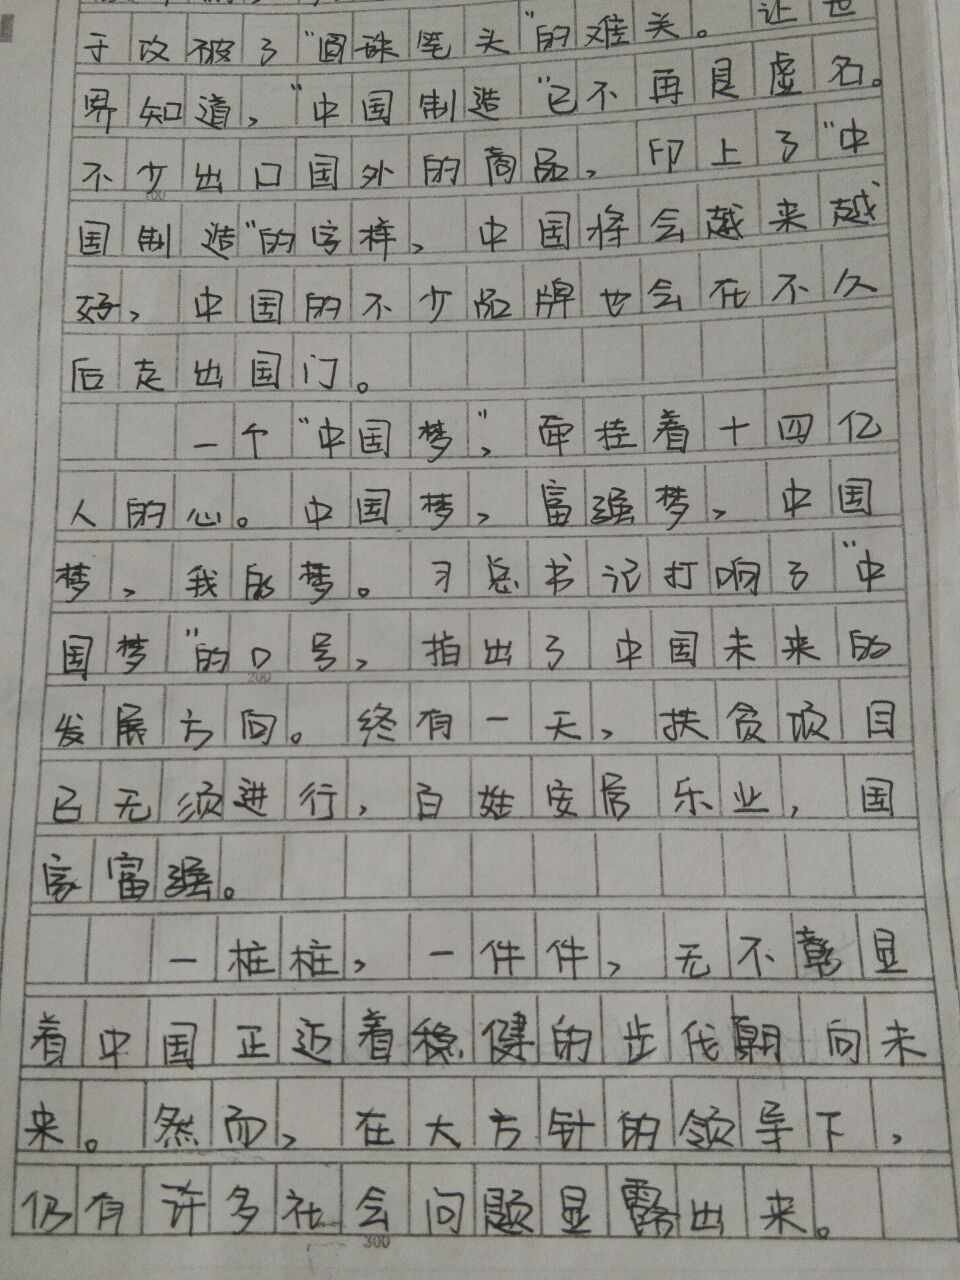 于攻破了“圆珠笔头”的难关。让世
界知道,“中国制造”已不再是虚名。
不少出口国外的商品,印上了“中
国制造”的字样,中国将会越来越
好,中国的不少品牌也会在不久
后走出国门。
一个“中国梦”,牵挂着十四亿
人的心。中国梦,富强梦,中国
梦,我的梦。习总书记打响了“中
国梦”的口号,指出了中国未来的
200
发展方向。终有一天,扶贫项目
已无须进行,百姓安居乐业,国
家富强。
一桩桩,一件件,无不彰显
着中国正迈着稳健的步伐朝向未
来。然而,在大方针的领导下,
仍有许多社会问题显露出来。
300